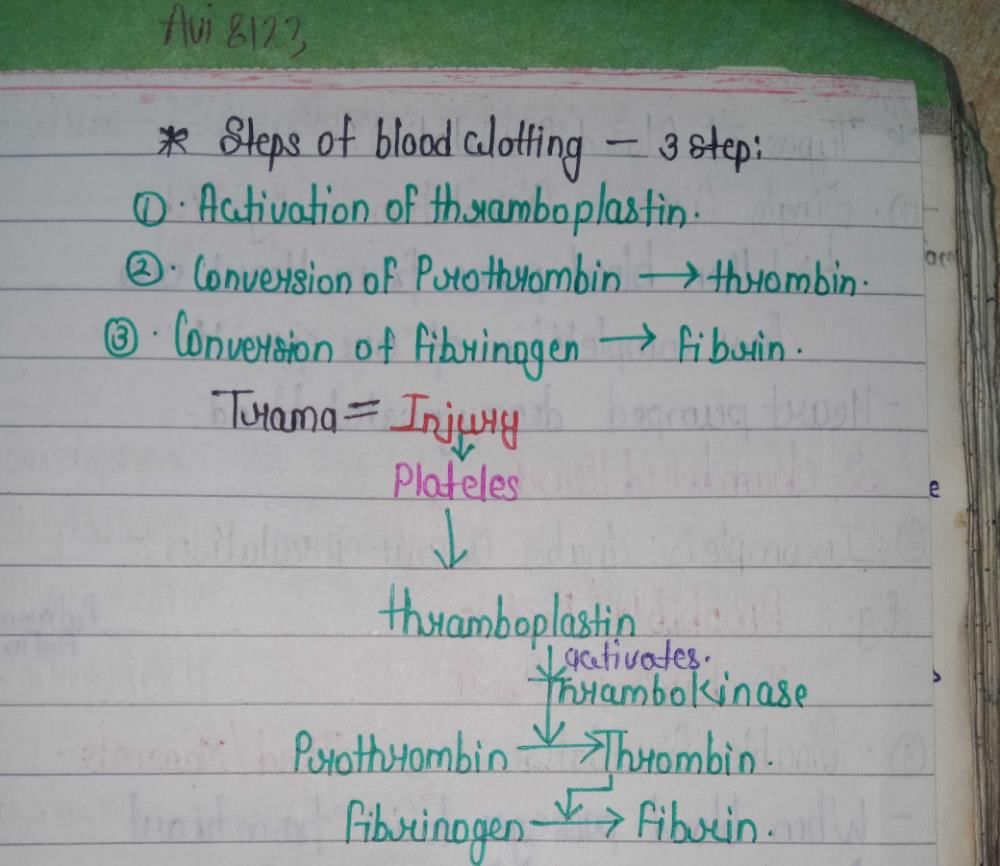 Avi 8123
* Steps of blood clotting — 3 step:
① · Activation of thramboplastin.
② · Conversion of Prothrombin → thrombin.
③ · Conversion of fibrinogen → fibrin.
Trama = Injury
↓
Plateles
↓
thramboplastin
↓ activates.
Thrambokinase
Prothrombin → Thrombin.
fibrinogen → fibrin.